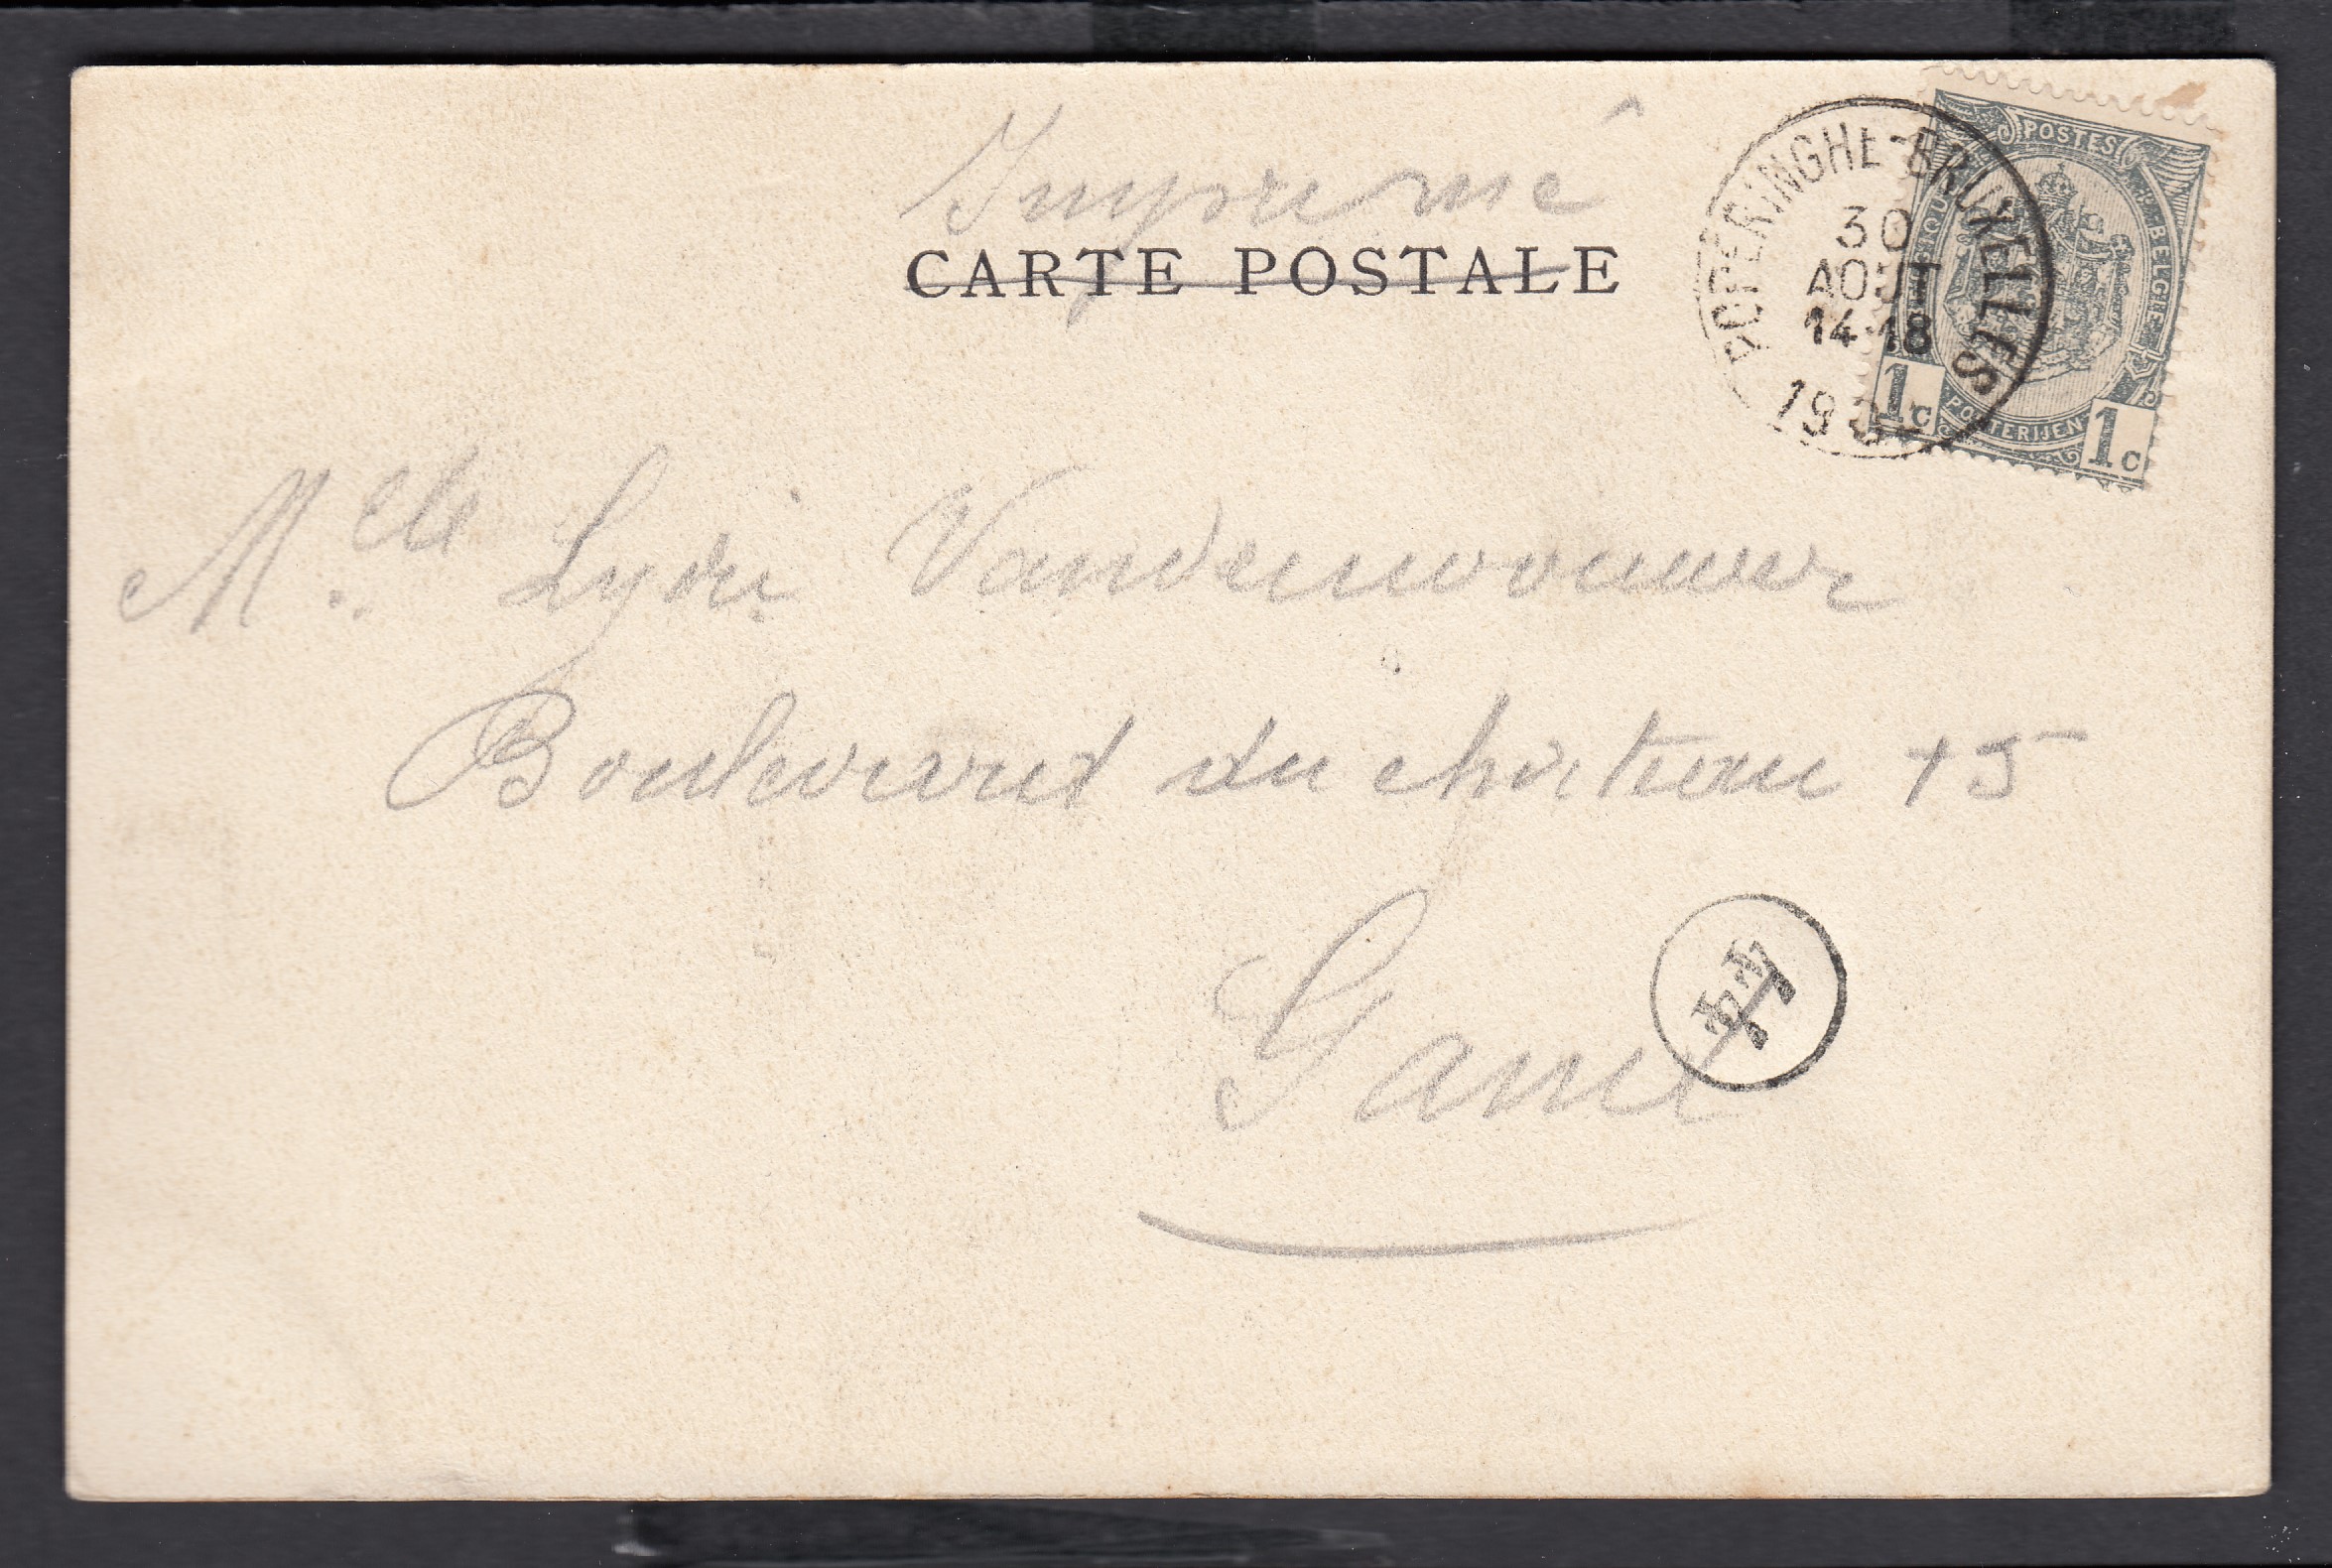 Imprimé
CARTE POSTALE
POPERINGHE-BRUXELLES
30
AOUT
14-18
POSTES
BELGIQUE
BELGIE
POSTERIJEN
1c
1c
Melle Lydie Vandenwouwer
Boulevard du château 15
Gand